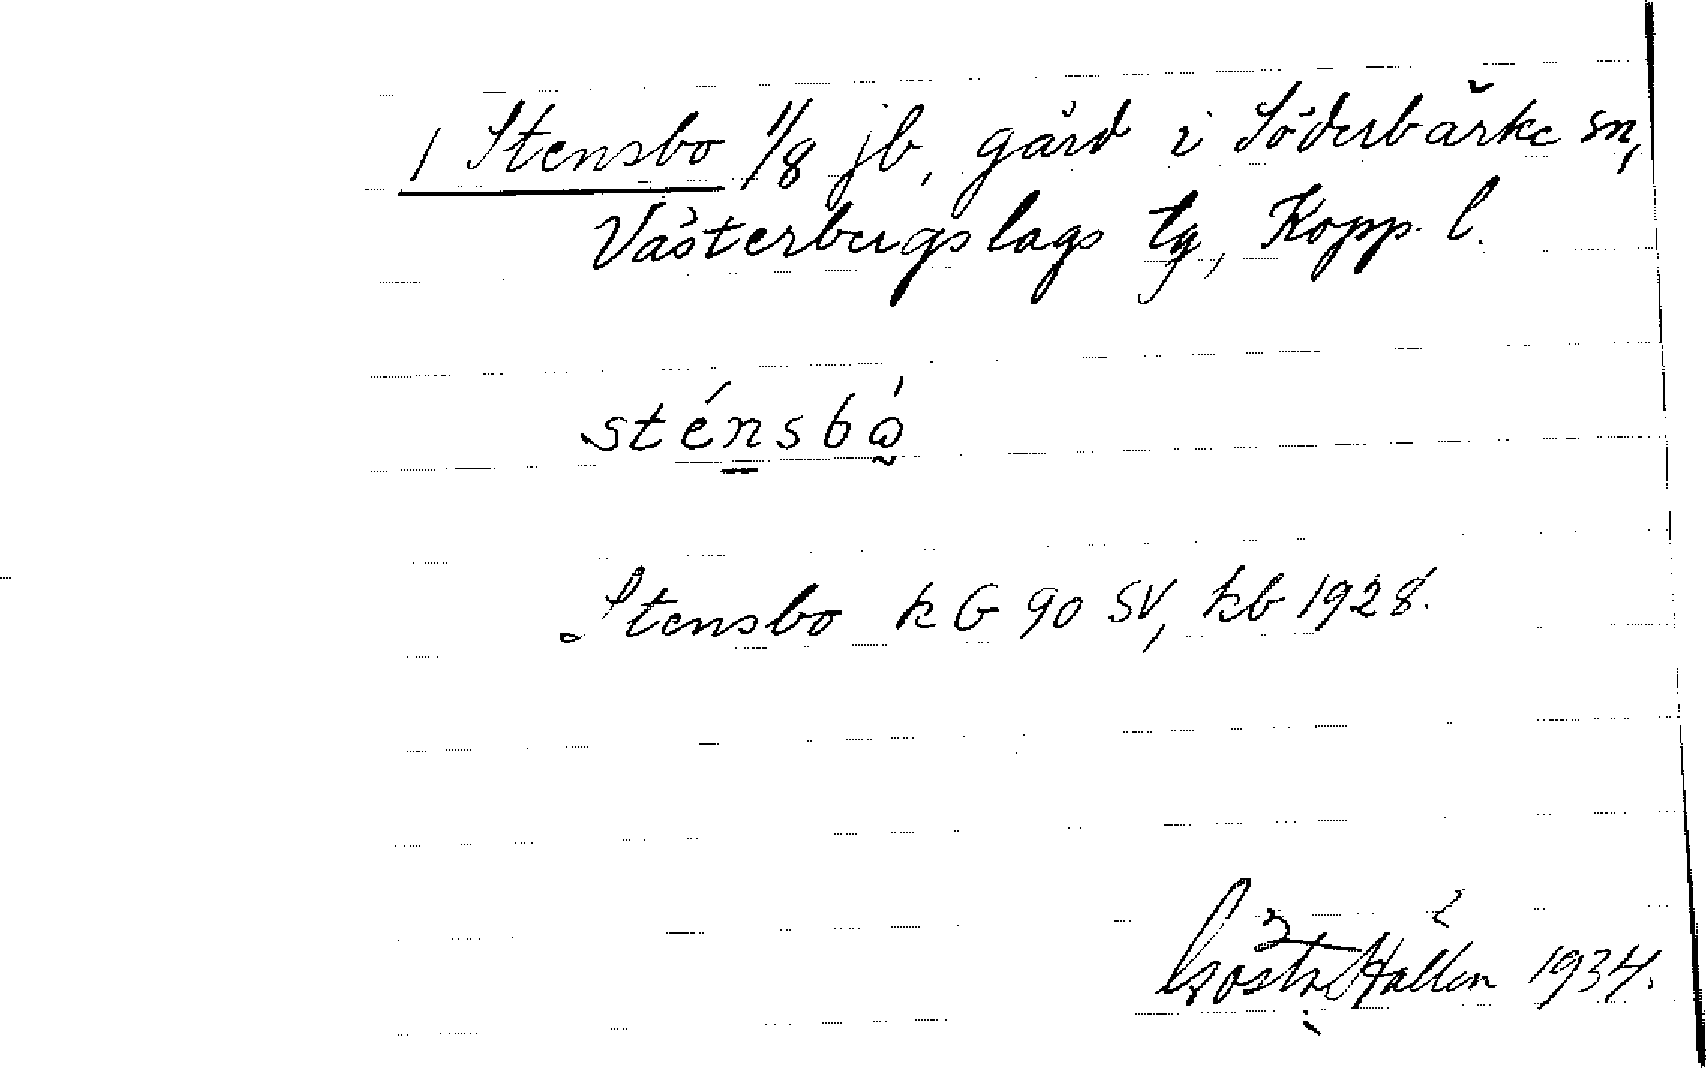 1 Stensbo 1/8 jb, gård i Söderbärke sn,
Västerbergslags tg, Kopp. l.
sténsbò̰
Stensbo k G 90 SV, kb 1928.
Gösta Hallén 1934.